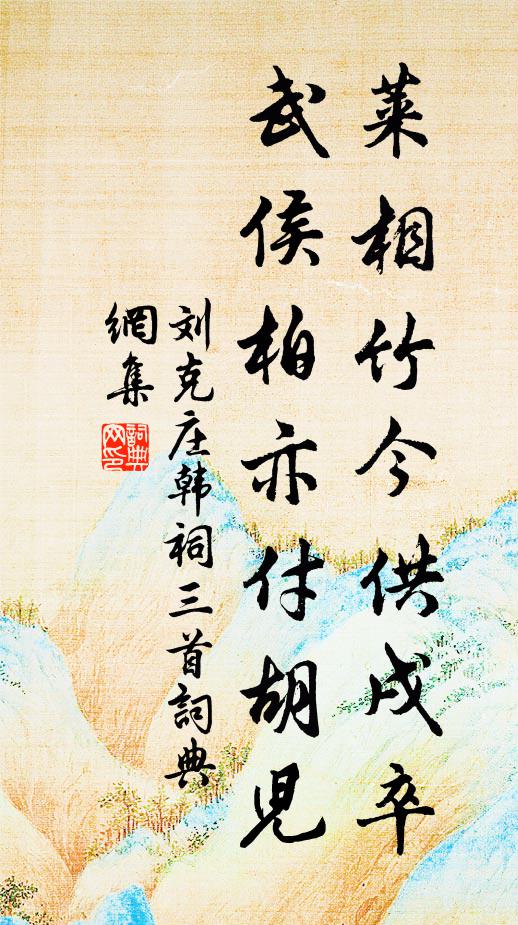 莱相竹今供戍卒
武侯柏亦付胡児
刘克庄韩祠三首詞典
網集
詞典
网印